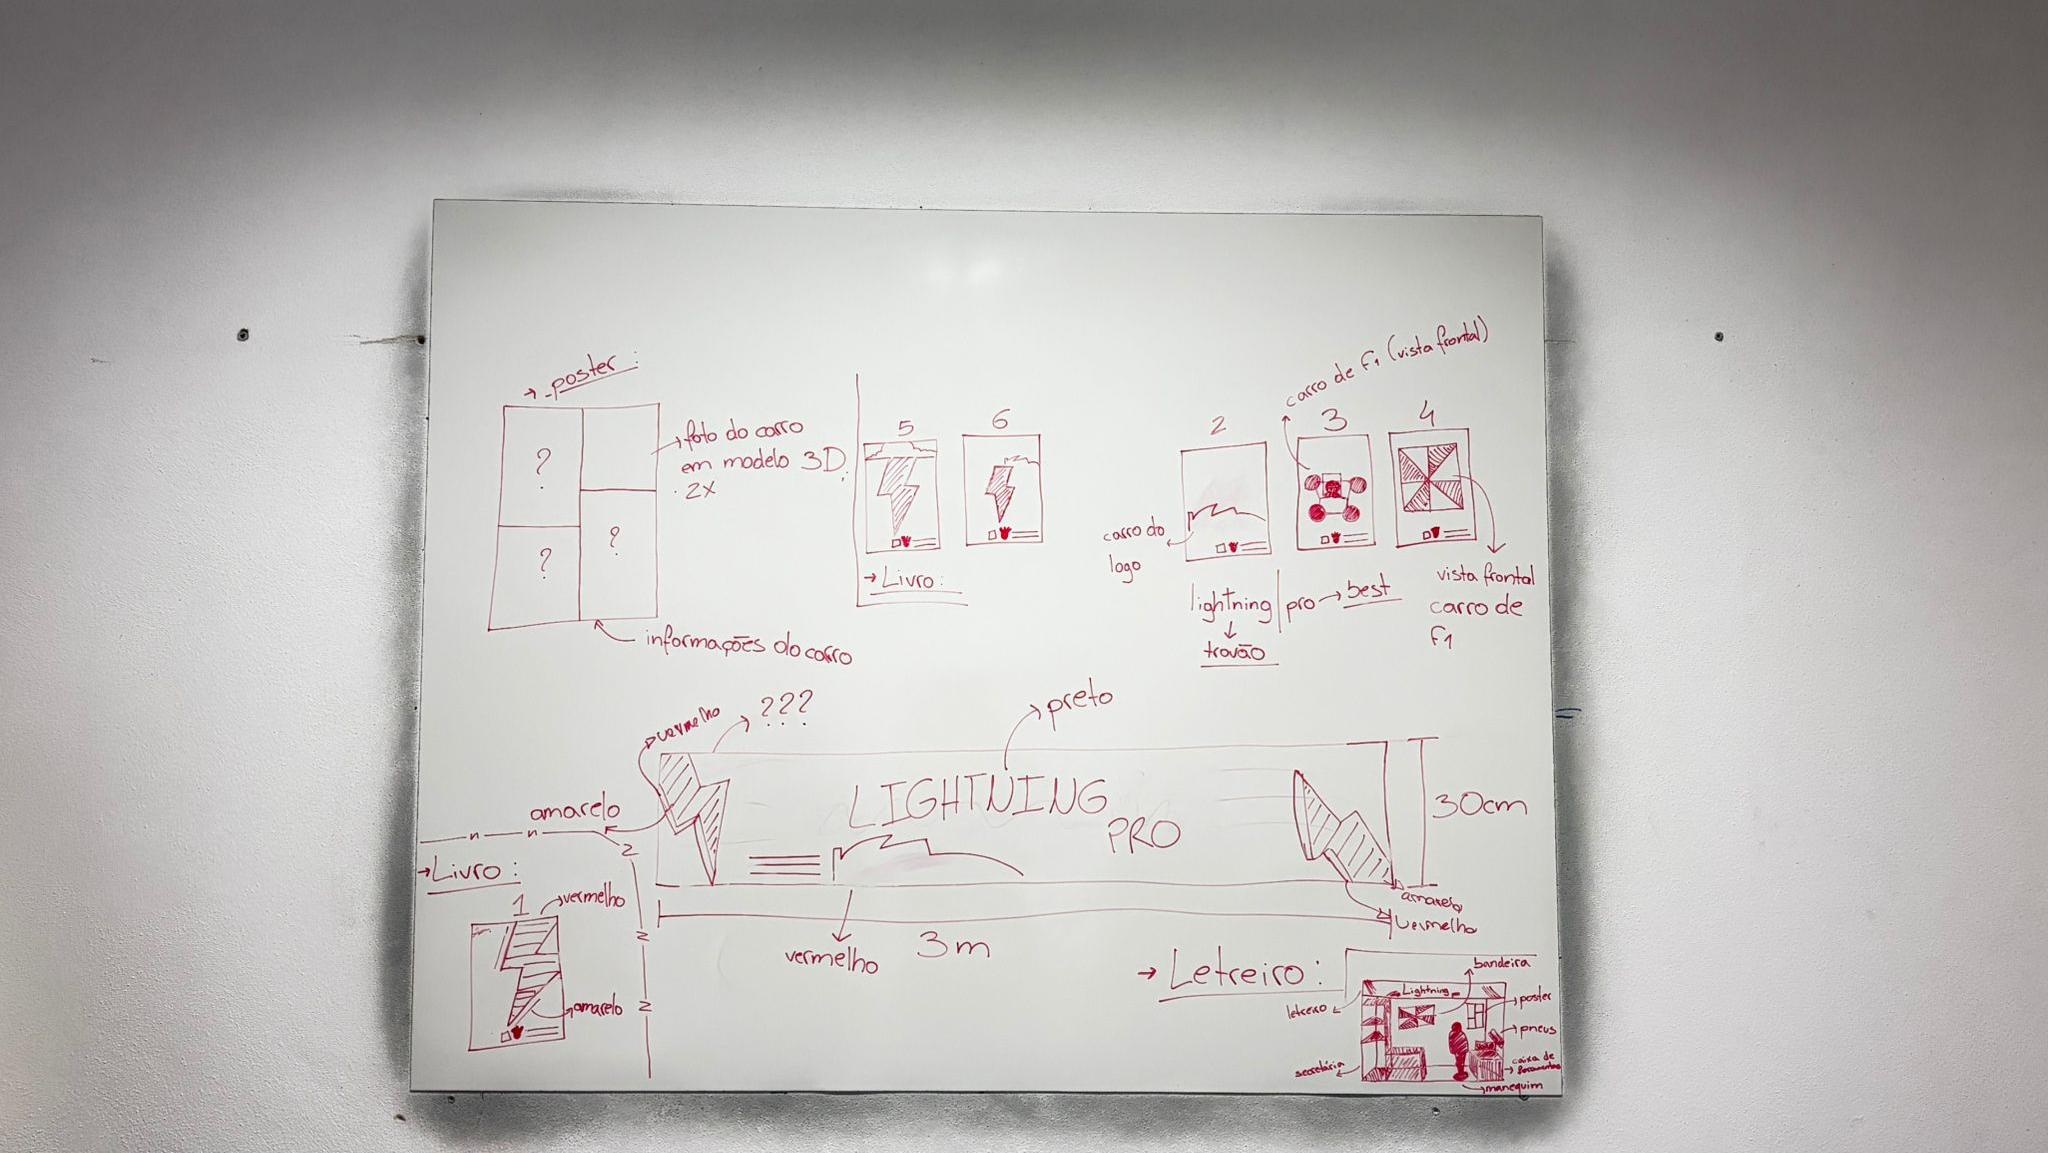 → poster :
?
?
?
→ foto do carro
em modelo 3D.
2x
informações do carro
5
6
→ Livro :
2
3
4
carro de F1 (vista frontal)
carro do
logo
vista frontal
carro de
F1
lightning | pro → best
travão
vermelho
???
preto
amarelo
LIGHTNING
PRO
30cm
amarelo
vermelho
vermelho
3m
→ Livro :
1
vermelho
amarelo
→ Letreiro :
bandeira
letreiro
Lightning
poster
pneus
caixa de
ferramentas
secretária
manequim